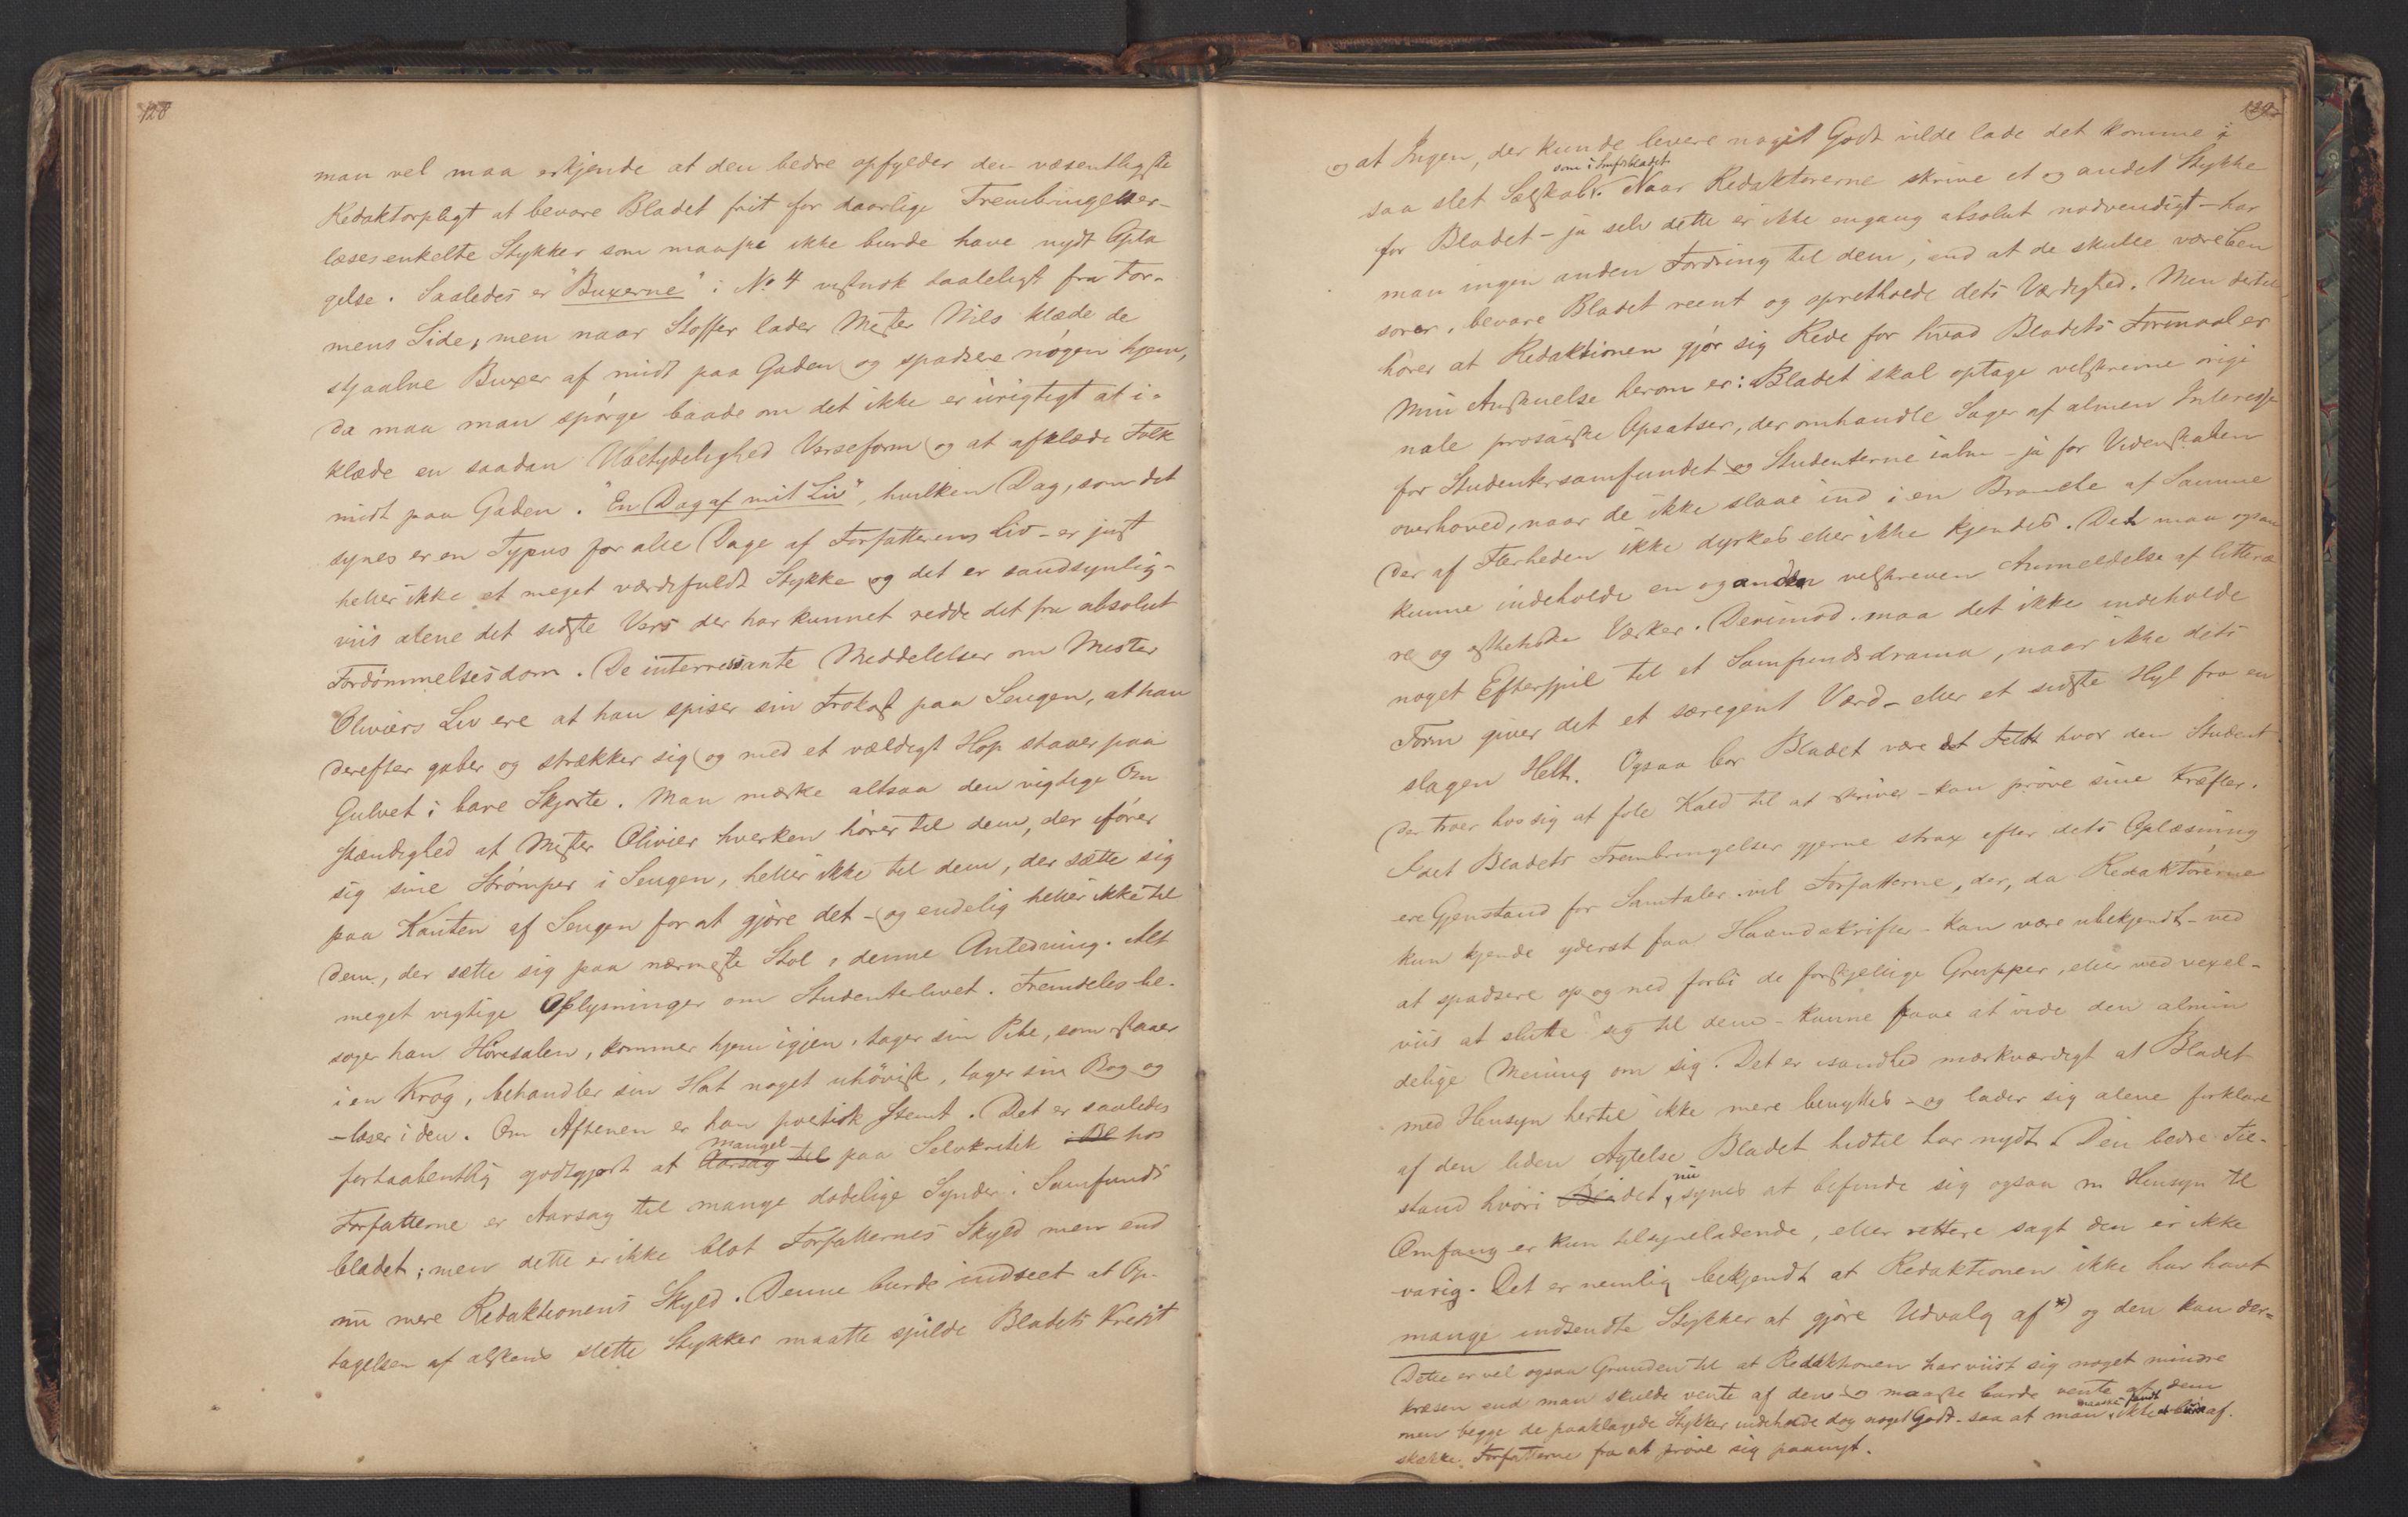 128
man vel maa erkjende at den bedre opfylder den væsentligste
Redaktørpligt at bevare Bladet frit for daarlige Frembringelser –
læses enkelte Stykker som maaske ikke burde have nydt Opta
gelse. Saaledes er "Buxerne" i No 4 vistnok taaleligt fra For-
mens Side, men naar Stoffer lader Mester Nils klæde de
stjaalne Buxer af midt paa Gaden (og spadsere nøgen hjem,
da maa man spørge baade om det ikke er urigtigt at i-
klæde en saadan Ubetydelighed Verseform (og at afklæde Folk
midt paa Gaden. "En Dag af mit Liv", hvilken Dag, som det
synes er en Typus for alle Dage af Forfatterens Liv – er just
heller ikke et meget værdifuldt Stykke og det er sandsynlig-
viis alene det sidste Vers der har kunnet redde det fra absolut
Fordømmelsesdom. De interressante Meddelelser om Mester
Oliviers Liv ere at han spiser sin Frokost paa Sengen, at han
derefter gaber og strækker sig (og med et vældigt Hop staaer paa
Gulvet i bare Skjorte. Man mærke altsaa den vigtige Om
stændighed at Mester Olivier hverken hører til dem, der ifører
sig sine Strømper i Sengen, heller ikke til dem, der sætte sig
paa Kanten af Sengen for at gjøre det – (og endelig heller ikke til
dem, der sætte sig paa nærmeste Stol i denne Anledning. Alt
meget vigtige Oplysninger om Studenterlivet. Fremdeles be-
søger han Høresalen, kommer hjem igjen, tager sin Pibe, som staaer
i en Krog, behandler sin Hat noget uhøvisk, tager sin Bog og
– læser i den. Om Aftenen er han poetisk stemt. Det er saaledes
mangel
forhaabentlig godtgjort at Aarsag til paa Selvkritik i Bl hos
Forfatterne er Aarsag til mange dødelige Synder i Samfunds
bladet; men dette er ikke blot Forfatternes Skyld men end
nu mere Redaktionens Skyld. Denne burde indseet at Op-
tagelsen af alskens slette Stykker maatte spilde Bladets Kredit
129
og at Ingen, der kunde levere noget Godt vilde lade det komme i
som i Smfsbladet
saa slet Selskab. Naar Redaktørerne skrive et og andet Stykke
for Bladet – ja selv dette er ikke engang absolut nødvendigt – har
man ingen anden Fordring til dem, end at de skulle være Cen
sorer, bevare Bladet reent og opretholde dets Værdighed. Men dertil
hører at Redaktionen gjør sig Rede for hvad Bladets Formaal er
Min Anskuelse herom er: Bladet skal optage velskrevne origi
nale prosaiske Opsatser, der omhandle Sager af almen Interesse
for Studentersamfundet og Studenterne ialm – ja for Videnskaben
overhoved, naar de ikke slaae ind i en Branche af Samme
der af Flerheden ikke dyrkes eller ikke kjendes. Det maa ogsaa
kunne indeholde en og anden velskreven Anmeldelse af litteræ
re og æsthetiske Værker. Derimod maa det ikke indeholde
noget Efterspil til et Samfundsdrama, naar ikke dets
Form giver det et særegent Værd – eller et sidste Hyl fra en
slagen Helt. Ogsaa bør Bladet være det Felt hvor den Student
der troer hos sig at føle Kald til at skrive – kan prøve sine Kræfter.
Idet Bladets Frembringelser gjerne strax efter dets Oplæsning
ere Gjenstand for Samtaler vil Forfatterne, der, da Redaktørerne
kun kjende yderst faa Haandskrifter – kan være ubekjendt – ved
at spadsere op og ned forbi de forskjellige Grupper, eller ved vexel-
viis at slutte sig til dem – kunne faae at vide den almin
delige Mening om sig. Det er isandhed mærkværdigt at Bladet
med Hensyn hertil ikke mere benyttes – og lader sig alene forklare
af den liden Agtelse Bladet hidtil har nydt. Den bedre Til-
nu
stand hvori Bladet synes at befinde sig ogsaa m Hensyn til
Omfang er kun tilsyneladende, eller rettere sagt den er ikke
varig. Det er nemlig bekjendt at Redaktionen ikke har havt
mange indsendte Stykker at gjøre Udvalg af *) og den kan der-
Dette er vel ogsaa Grunden til at Redaktionen har viist sig noget mindre
kræsen end man skulde vente af den – maaske burde vente af dem
men begge de paaklagede Stykker indeholde dog noget Godt – saa at man ikke bør af.
skrække Forfatterne fra at prøve sig paanyt.